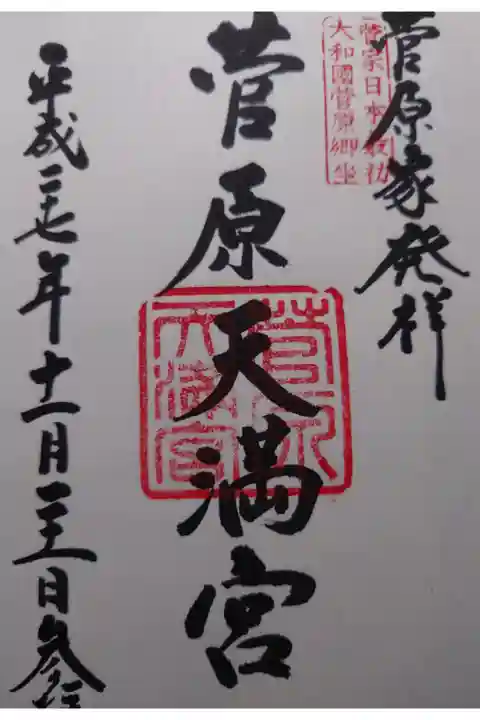 菅原家発祥
菅宗日本最初
大和國菅原郷坐
菅原天満宮
菅原
天満宮
平成二十七年十一月二十三日参拝